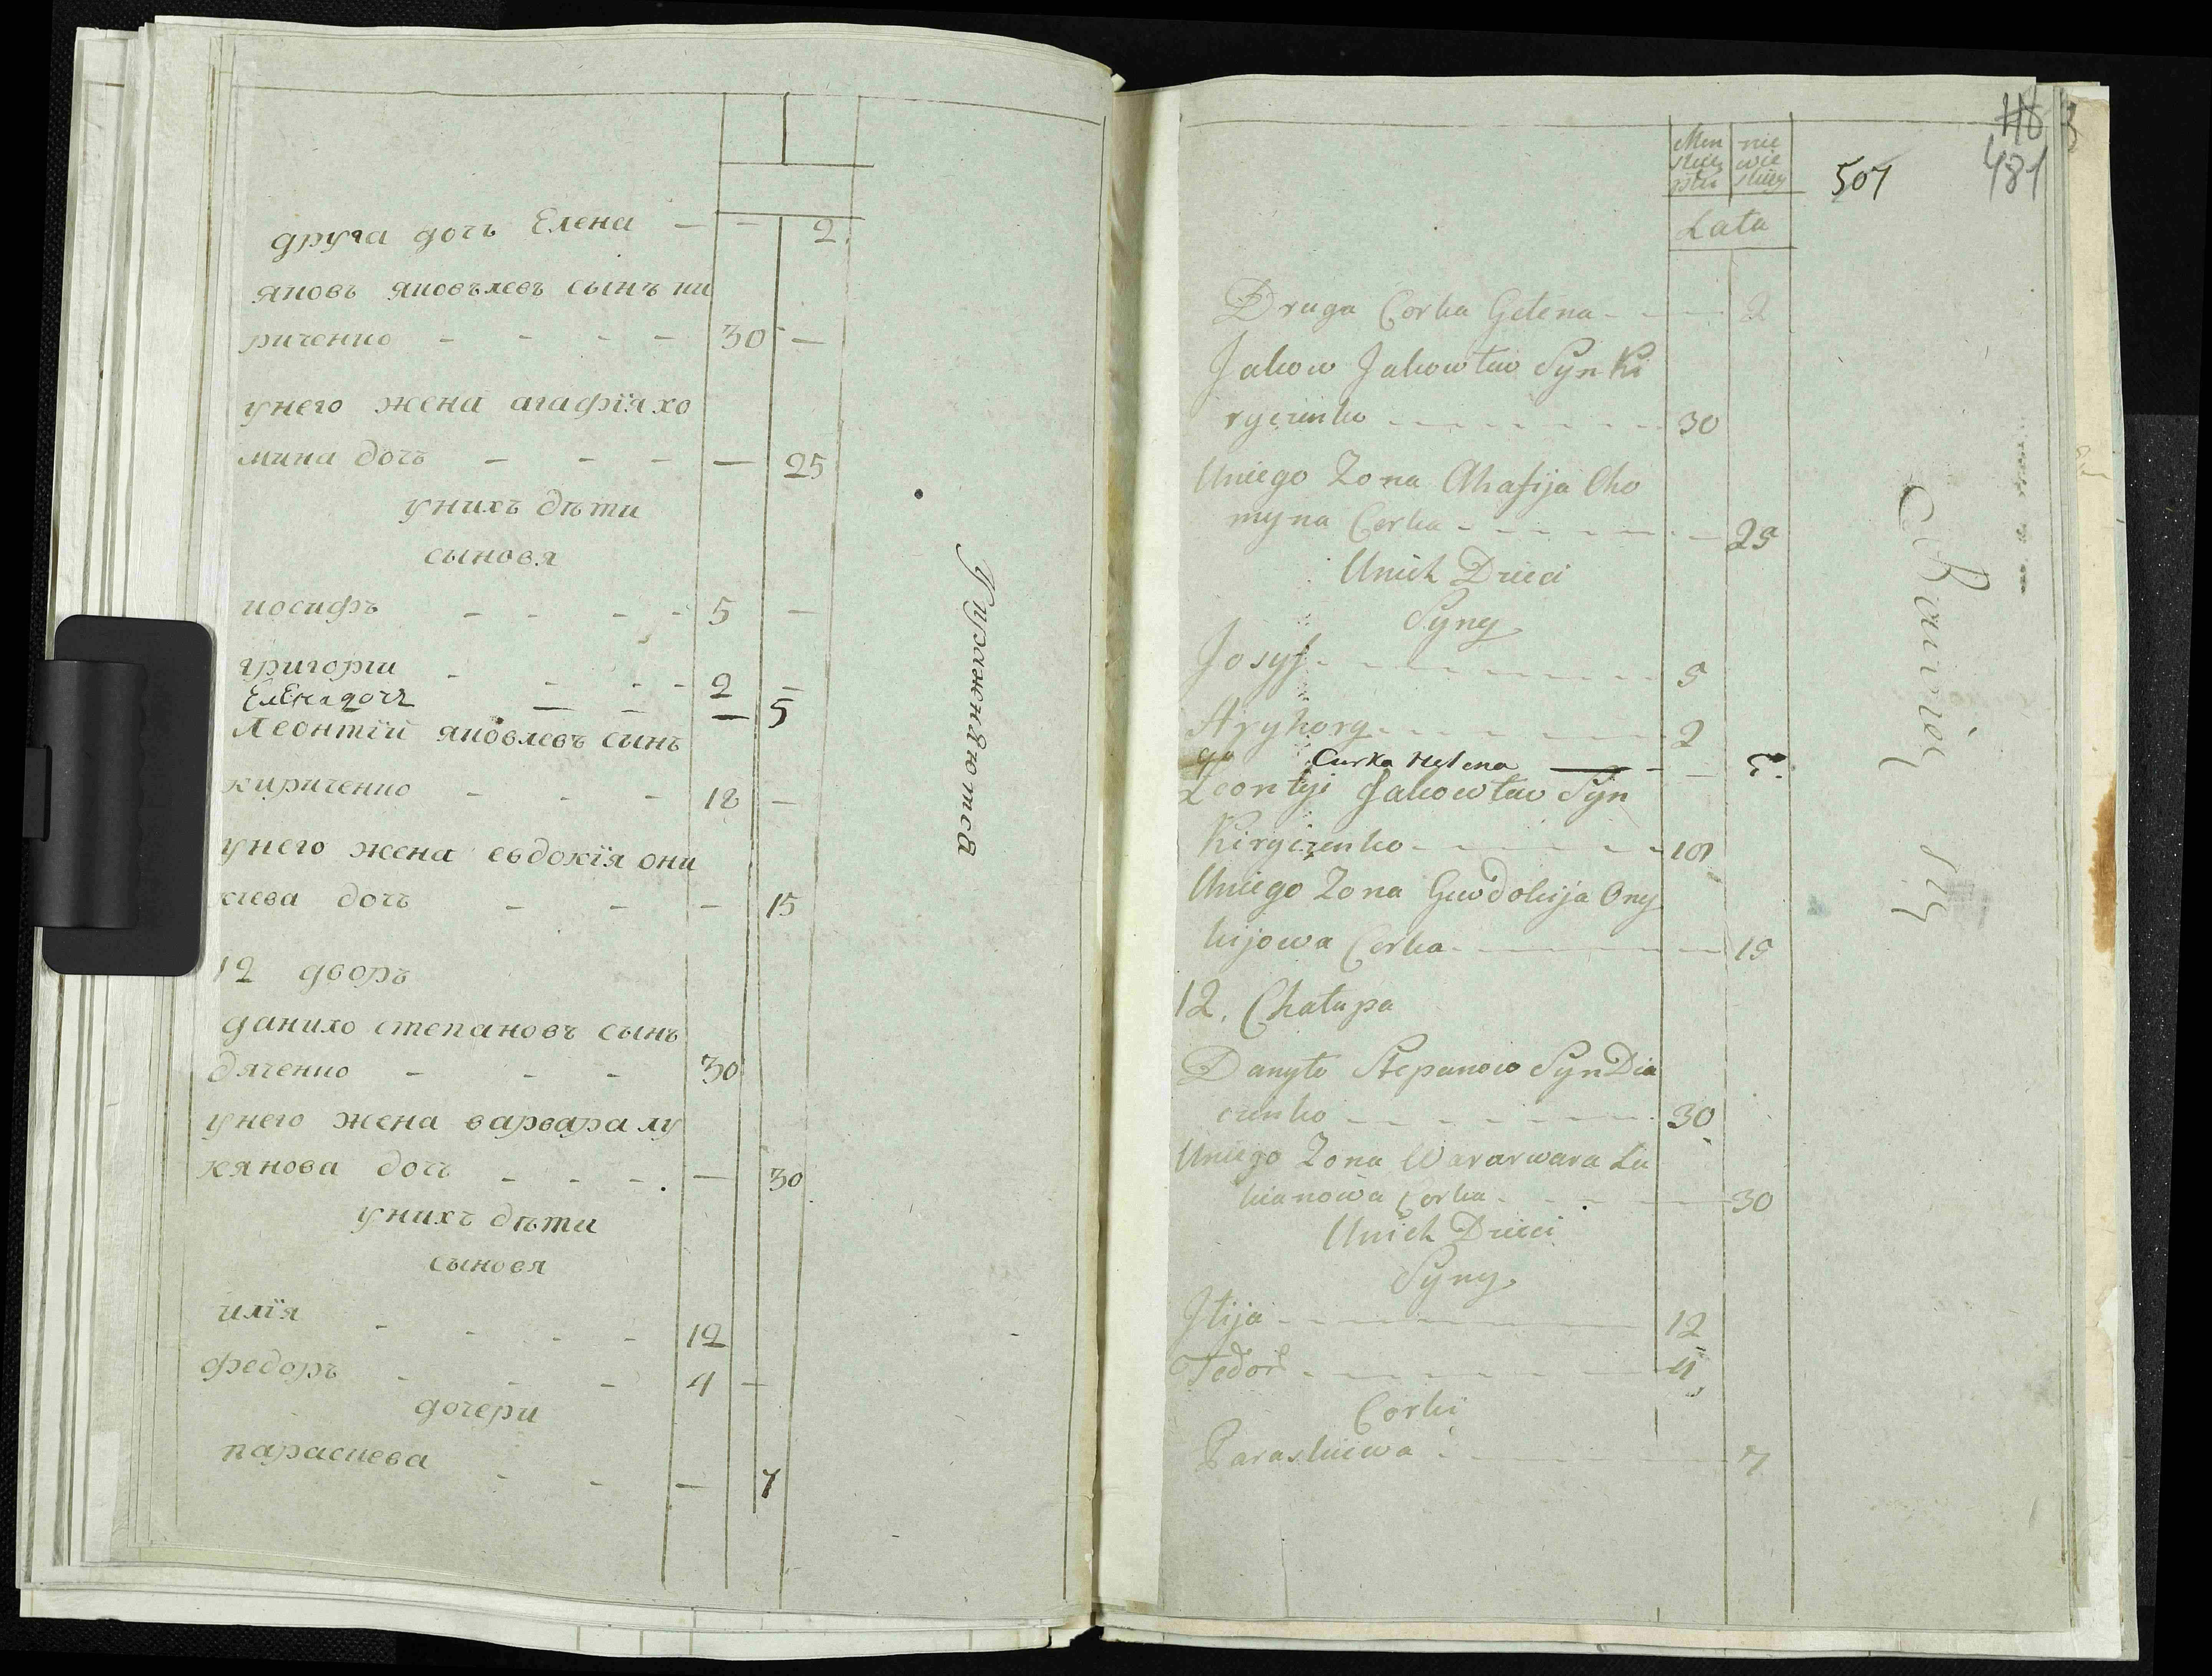 друга дочъ Елена — — 2
яковъ яковълевъ сынъ ки
риченко - - - - 30 —
унего жена агафїя хо
мина дочъ - - - — 25
унихъ дѣти
сыновя
иосифъ - - - - 5 —
григории - - - - 2 —
Елена дочъ — — — 5
леонтїй яковлевъ сынъ
кириченко - - - 18 —
унего жена евдокїя они
киева дочъ - - - 15
12 дворъ
данило степановъ сынъ
дяченко - - - 30
унего жена варвара лу
кянова дочъ - - - — 30
унихъ дѣти
сыновя
илїя - - - - 12
федоръ - - - 4 —
дочери
параскева - - — 7
Упражняются
507
481
Men
skiey
płci
nie
wie
skiey
Lata
Druga Corka Gelena - - 2
Jakow Jakowław Syn Ki
ryczenko - - - - 30
Uniego Zona Ahafija Cho
myna Corka - - - - 25
Unich Dzieci
Syny
Josyf - - - - 5
Hryhory - - - - 2
Curka Helena —
Leontyi Jakowław Syn
Kiryczenko - - - - 18
Uniego Zona Gewdokija Ony
kijowa Corka - - - 15
12. Chałupa
Danyło Stepanow Syn Dia
czenko - - - - 30
Uniego Zona Wararwara Lu
kianowa Corka - - - 30
Unich Dzieci
Syny
Jlija - - - - 12
Fedor - - - - 4
Corki
Paraskiewa - - - 7